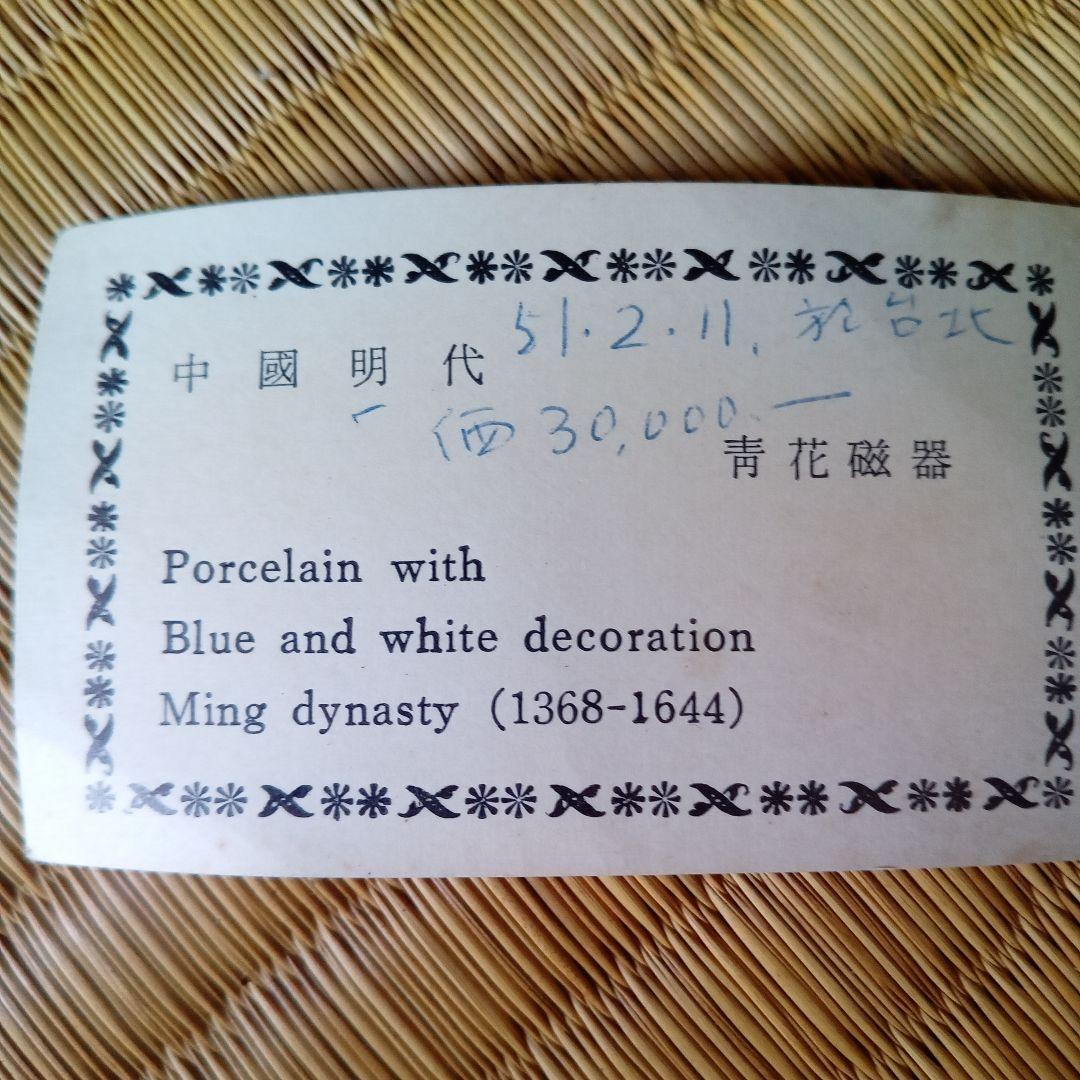 中國明代
51.2.11. 於台北
価 30,000.—
青花磁器
Porcelain with
Blue and white decoration
Ming dynasty (1368-1644)